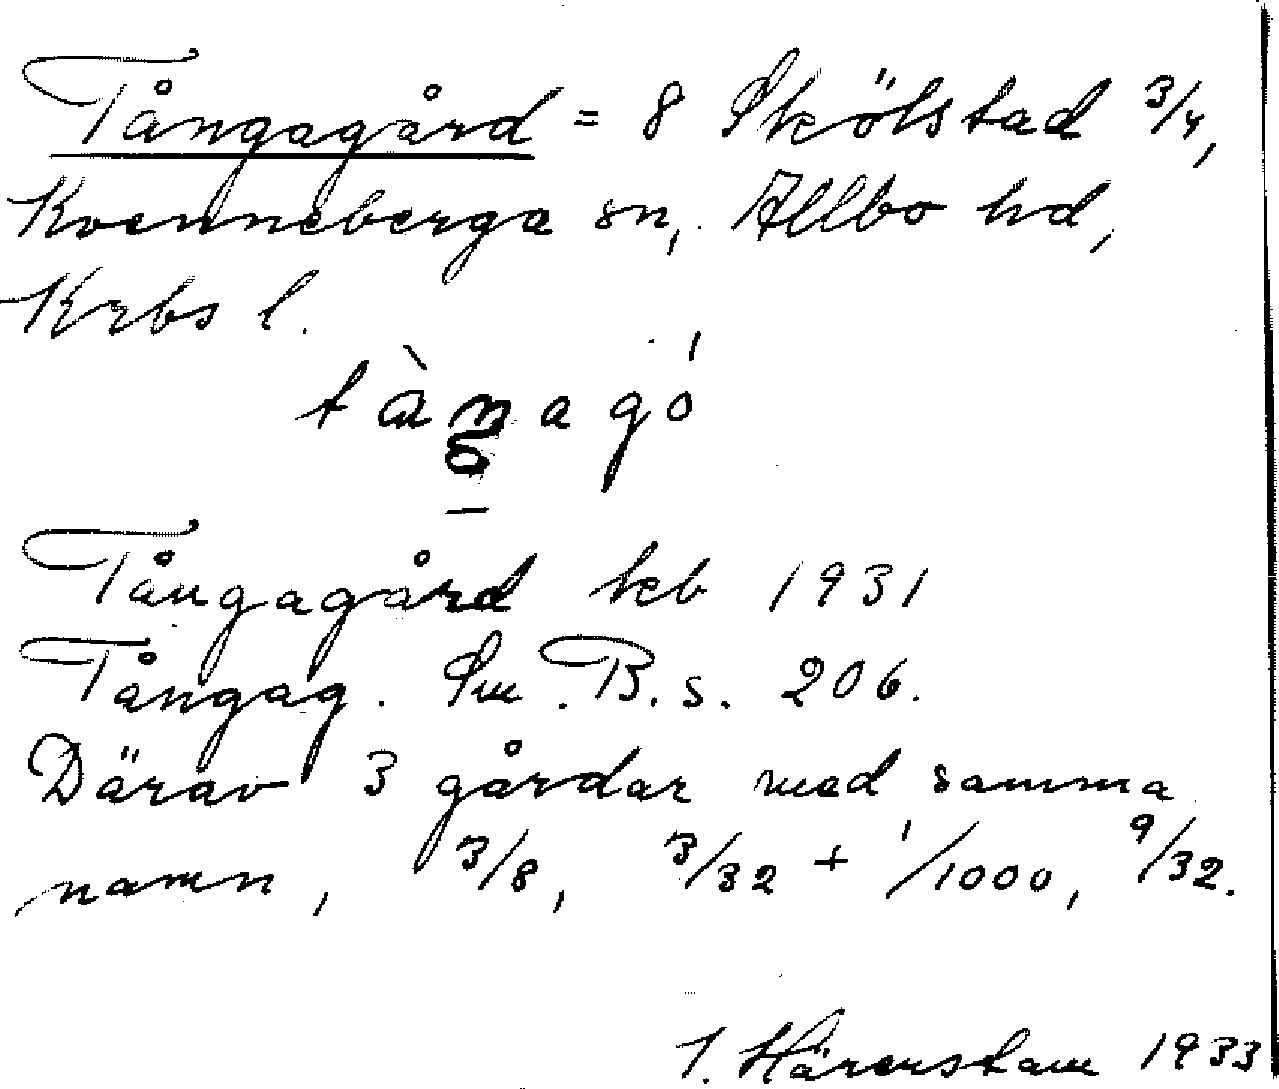 Tångagård = 8 Skölstad 3/4,
Kvenneberga sn, Allbo hd,
Krbs l.
tàŋagó
Tångagård kb 1931
Tångag. Sm. B. s. 206.
Därav 3 gårdar med samma
namn, 3/8, 3/32 + 1/1000, 9/32.
I. Härenstam 1933